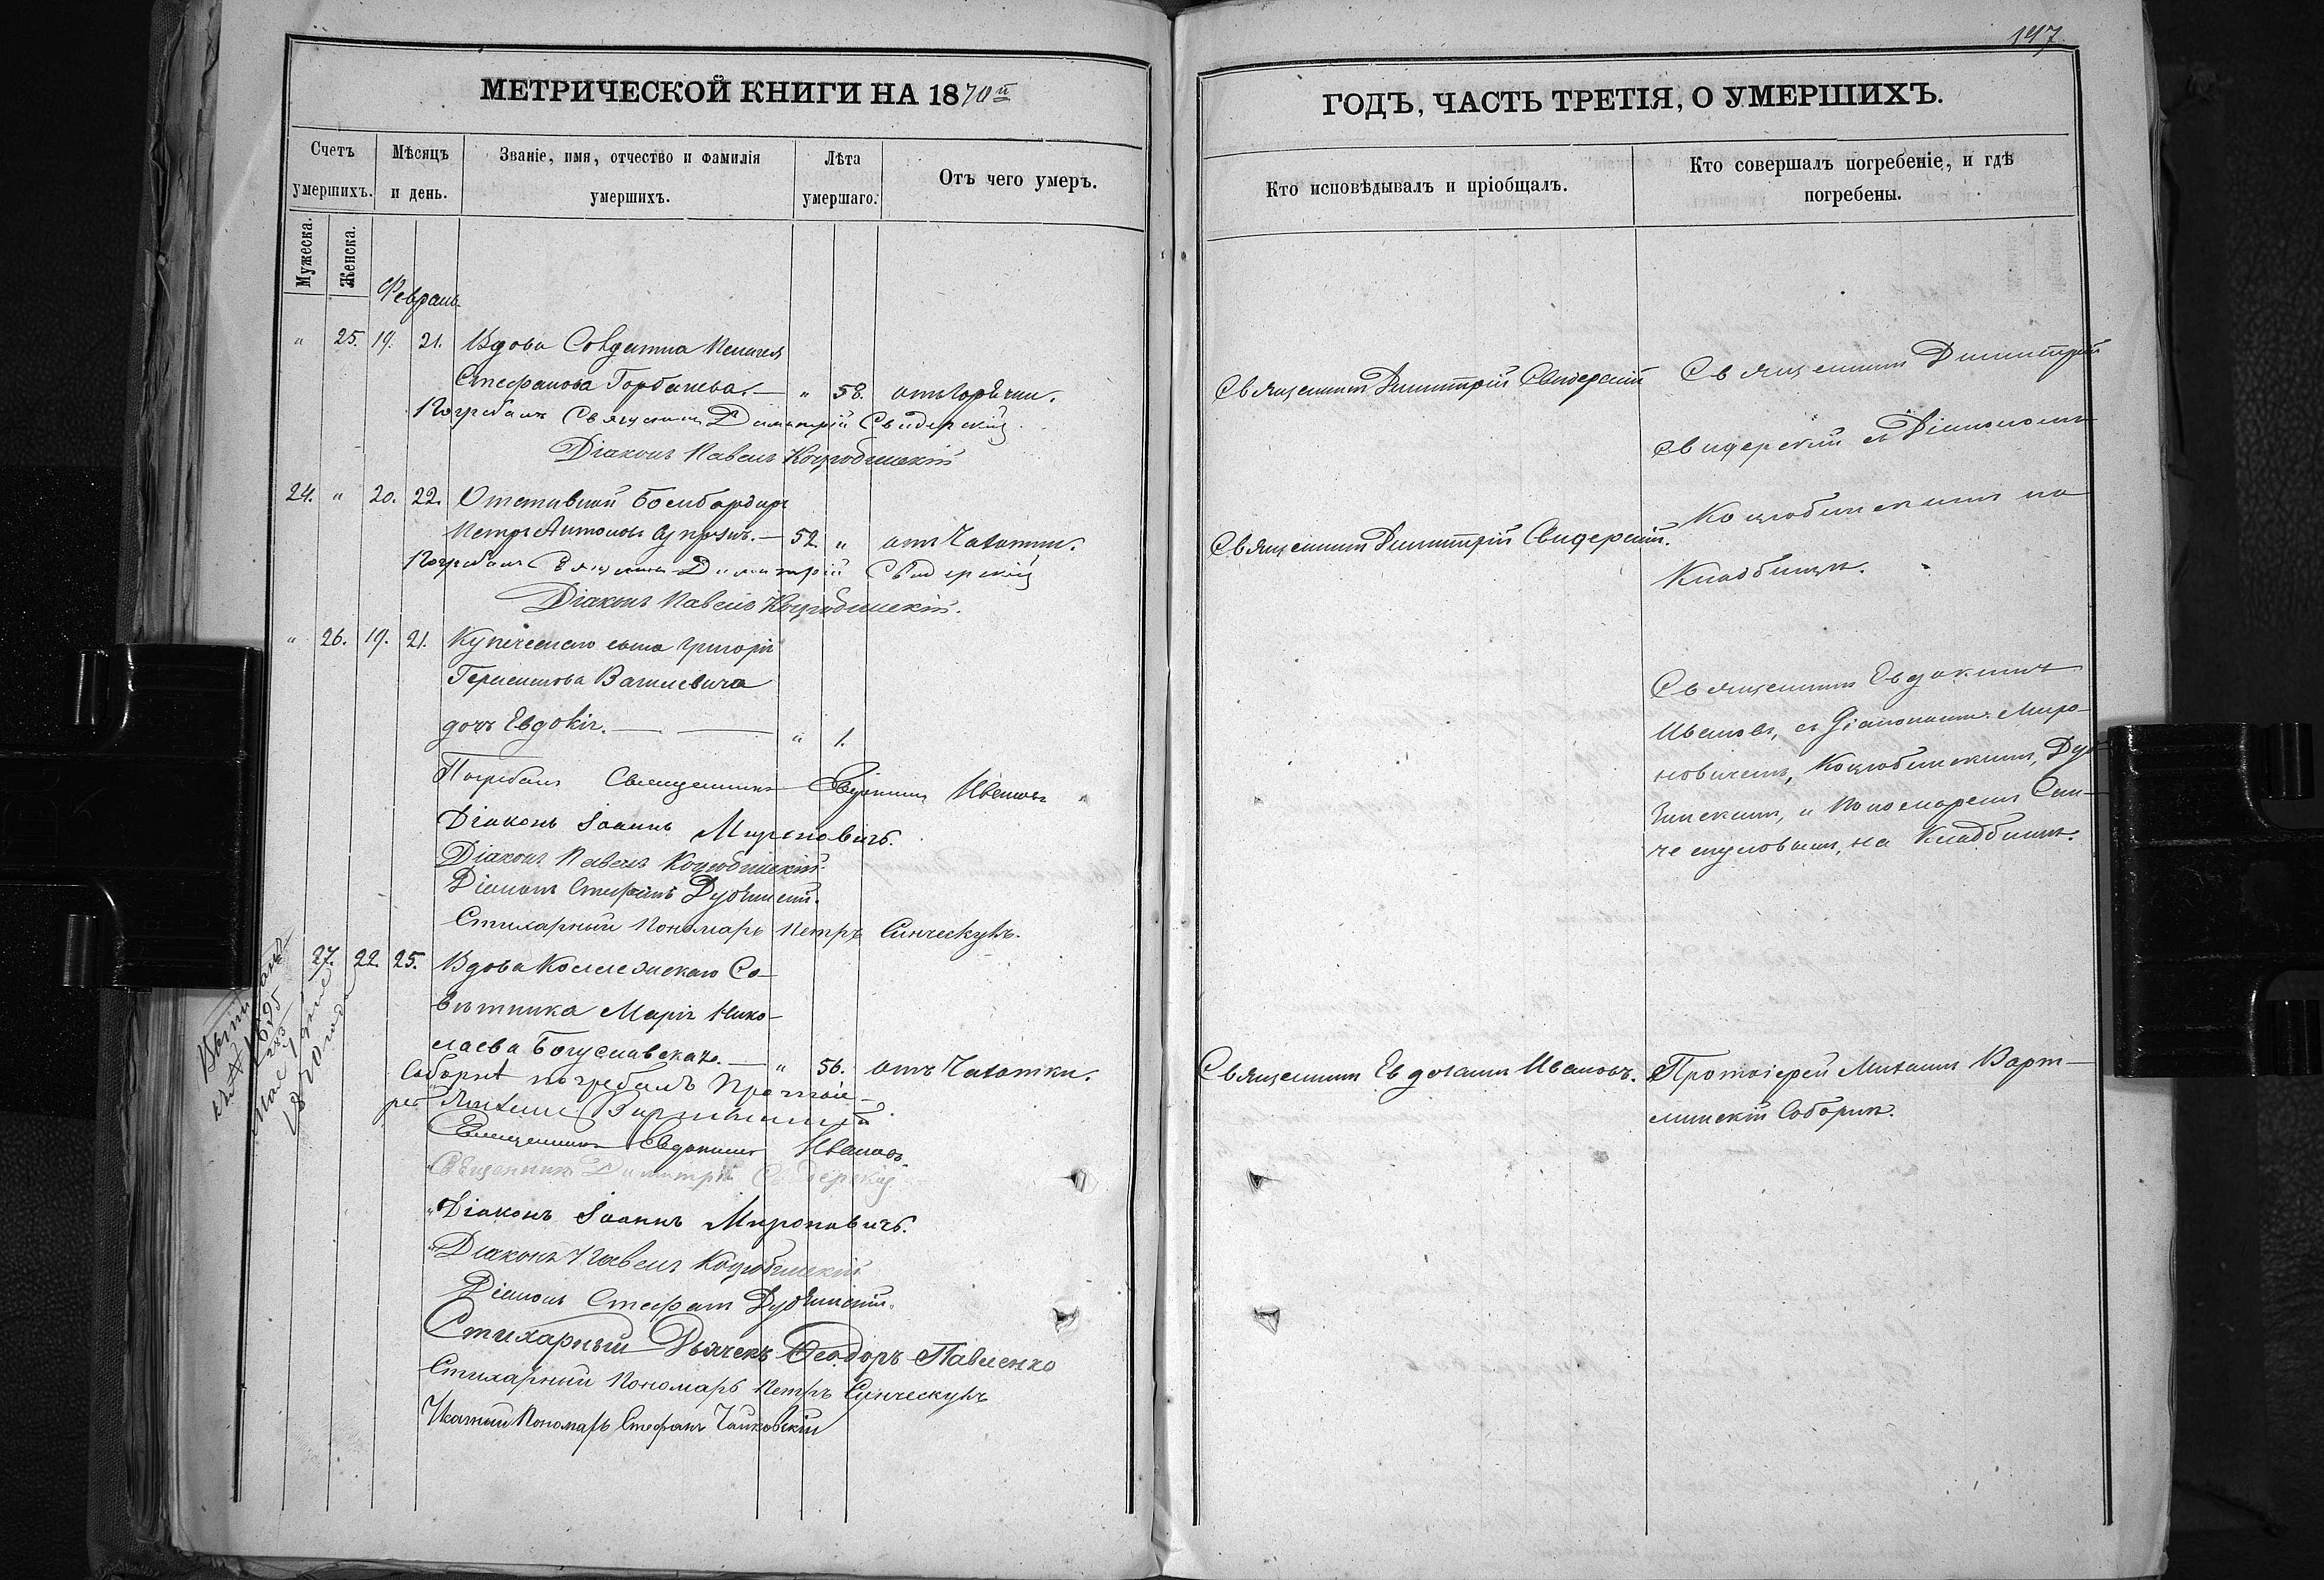 197.
МЕТРИЧЕСКОЙ КНИГИ НА 1870й
Счетъ умершихъ.
Мѣсяцъ и день.
Званіе, имя, отчество и фамилія умершихъ.
Лѣта умершаго.
Отъ чего умеръ.
Мужеска.
Женска.
Февраль
" 25. 19. 21. Вдова Солдатка
Стефанова Горбачева. — " 58. отъ горячки.
Погребалъ Священникъ Димитрій Свидерскій
Діаконъ Павелъ Коцюбинскій
24. " 20. 22. Отставной Бомбардиръ
Петръ Антоновъ — 52 " отъ Чахотки.
Погребалъ Священникъ Димитрій Свидерскій
Діаконъ Павелъ Коцюбинскій.
" 26. 19. 21. Купеческаго сына Григорія
Василевича
дочь Евдокія. — " 1.
Погребалъ Священникъ Евдокимъ Ивановъ
Діаконъ Іоаннъ Мироновичъ.
Діаконъ Павелъ Коцюбинскій.
Діаконъ Стефанъ Дубинскій.
Стихарный Пономарь Петръ Синческулъ.
27. 22. 25. Вдова Коллежскаго Со-
вѣтника Марія Нико-
лаева Богуславская. — " 56. отъ Чахотки.
Соборнѣ погребалъ Протоіе-
рей Михаилъ
Священникъ Евдокимъ Ивановъ.
Священникъ Димитрій Свидерскій
"Діаконъ Іоаннъ Мироновичъ.
"Діаконъ Павелъ Коцюбинскій
Діаконъ Стефанъ Дубинскій.
Стихарный Дьячекъ Ѳеодоръ Павленко
Стихарный Пономарь Петръ Синческулъ
Пономарь Стефанъ Чайковскій
1870 года
ГОДЪ, ЧАСТЬ ТРЕТІЯ, О УМЕРШИХЪ.
Кто исповѣдывалъ и пріобщалъ.
Кто совершалъ погребеніе, и гдѣ погребены.
Священникъ Димитрій Свидерскій
Священникъ Димитрій
Свидерскій съ Діакономъ
Коцюбинскимъ на
Кладбищѣ.
Священникъ Димитрій Свидерскій.
Священникъ Евдокимъ
Ивановъ, съ Діаконами: Миро-
новичемъ, Коцюбинскимъ, Ду-
бинскимъ, и Пономаремъ Син-
ческуловымъ, на Кладбищѣ.
Священникъ Евдокимъ Ивановъ.
Протоіерей Михаилъ Варт-
минскій Соборнѣ.